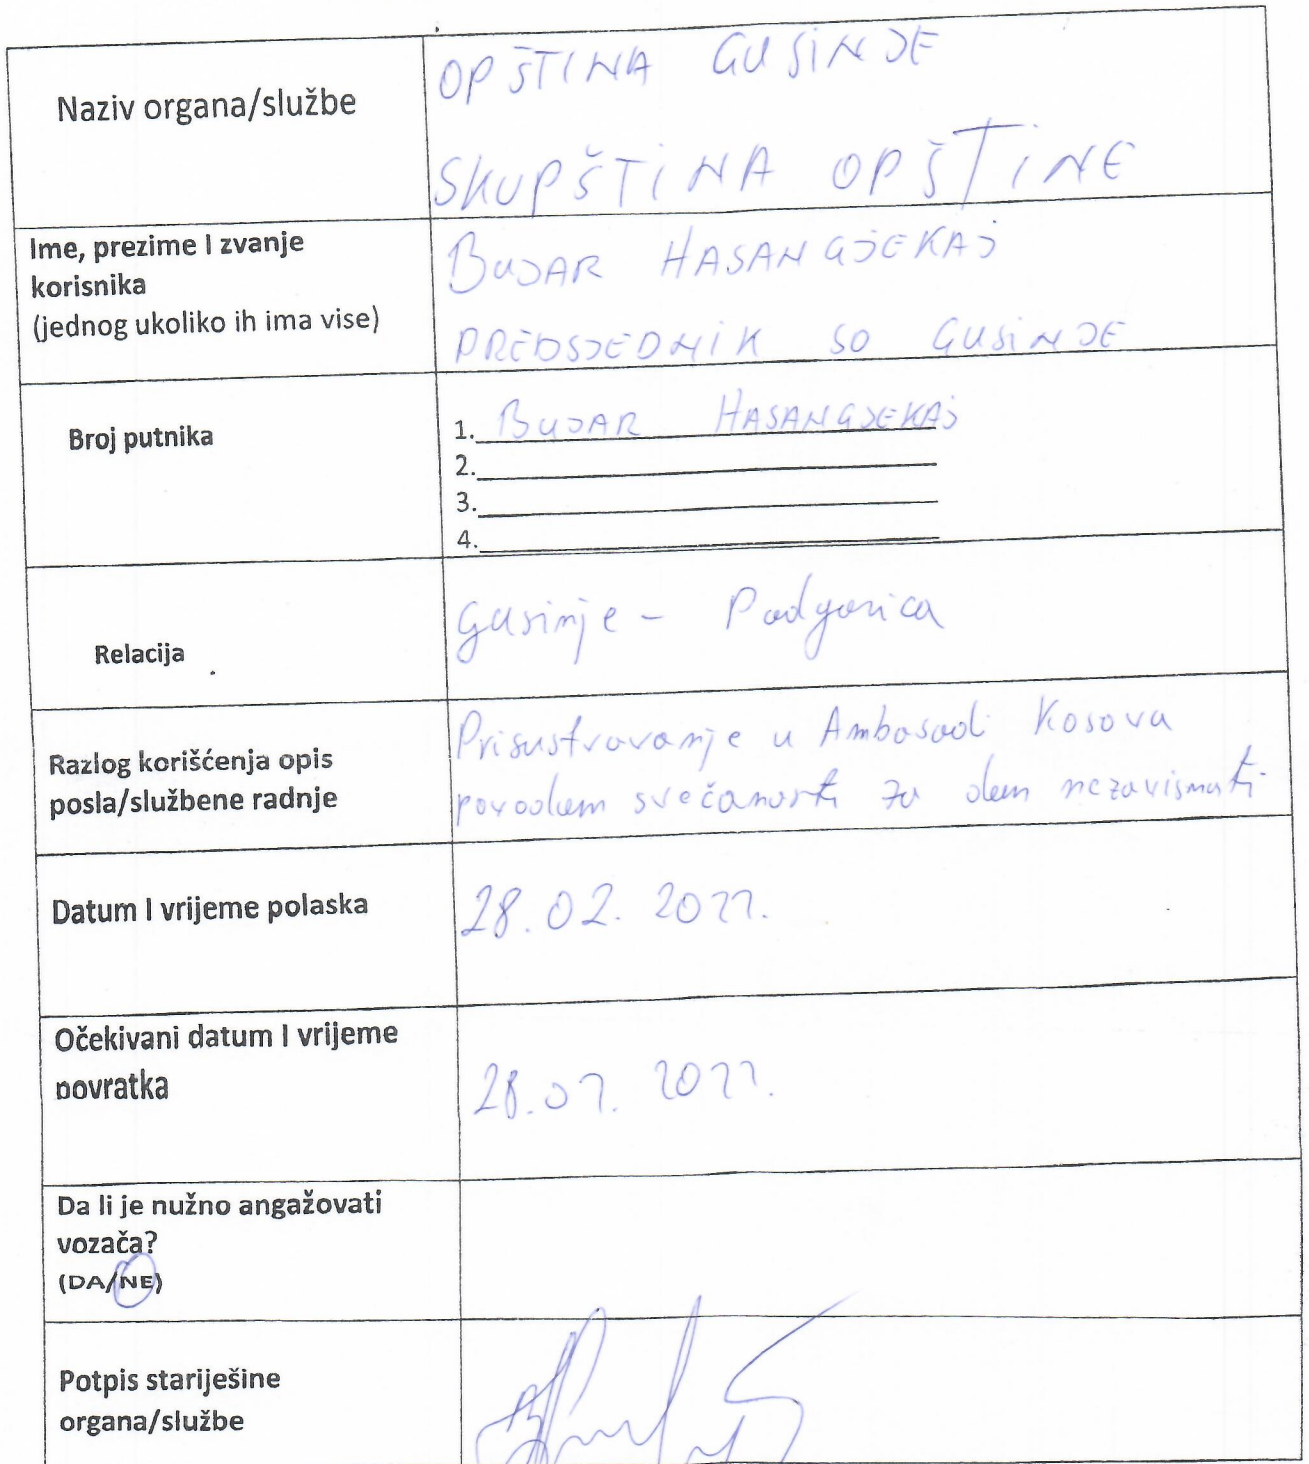 Naziv organa/službe
OPŠTINA GUSINJE
SKUPŠTINA OPŠTINE
Ime, prezime I zvanje
korisnika
(jednog ukoliko ih ima vise)
BUJAR HASANGJEKAJ
PREDSJEDNIK SO GUSINJE
Broj putnika
1. BUJAR HASANGJEKAJ
2.
3.
4.
Relacija
Gusinje - Podgorica
Razlog korišćenja opis
posla/službene radnje
Prisustvovanje u Ambasadi Kosova
povodom svečanosti za dan nezavisnosti
Datum I vrijeme polaska
28.02.2022.
Očekivani datum I vrijeme
povratka
28.02.2022.
Da li je nužno angažovati
vozača?
(DA/NE)
Potpis starješine
organa/službe